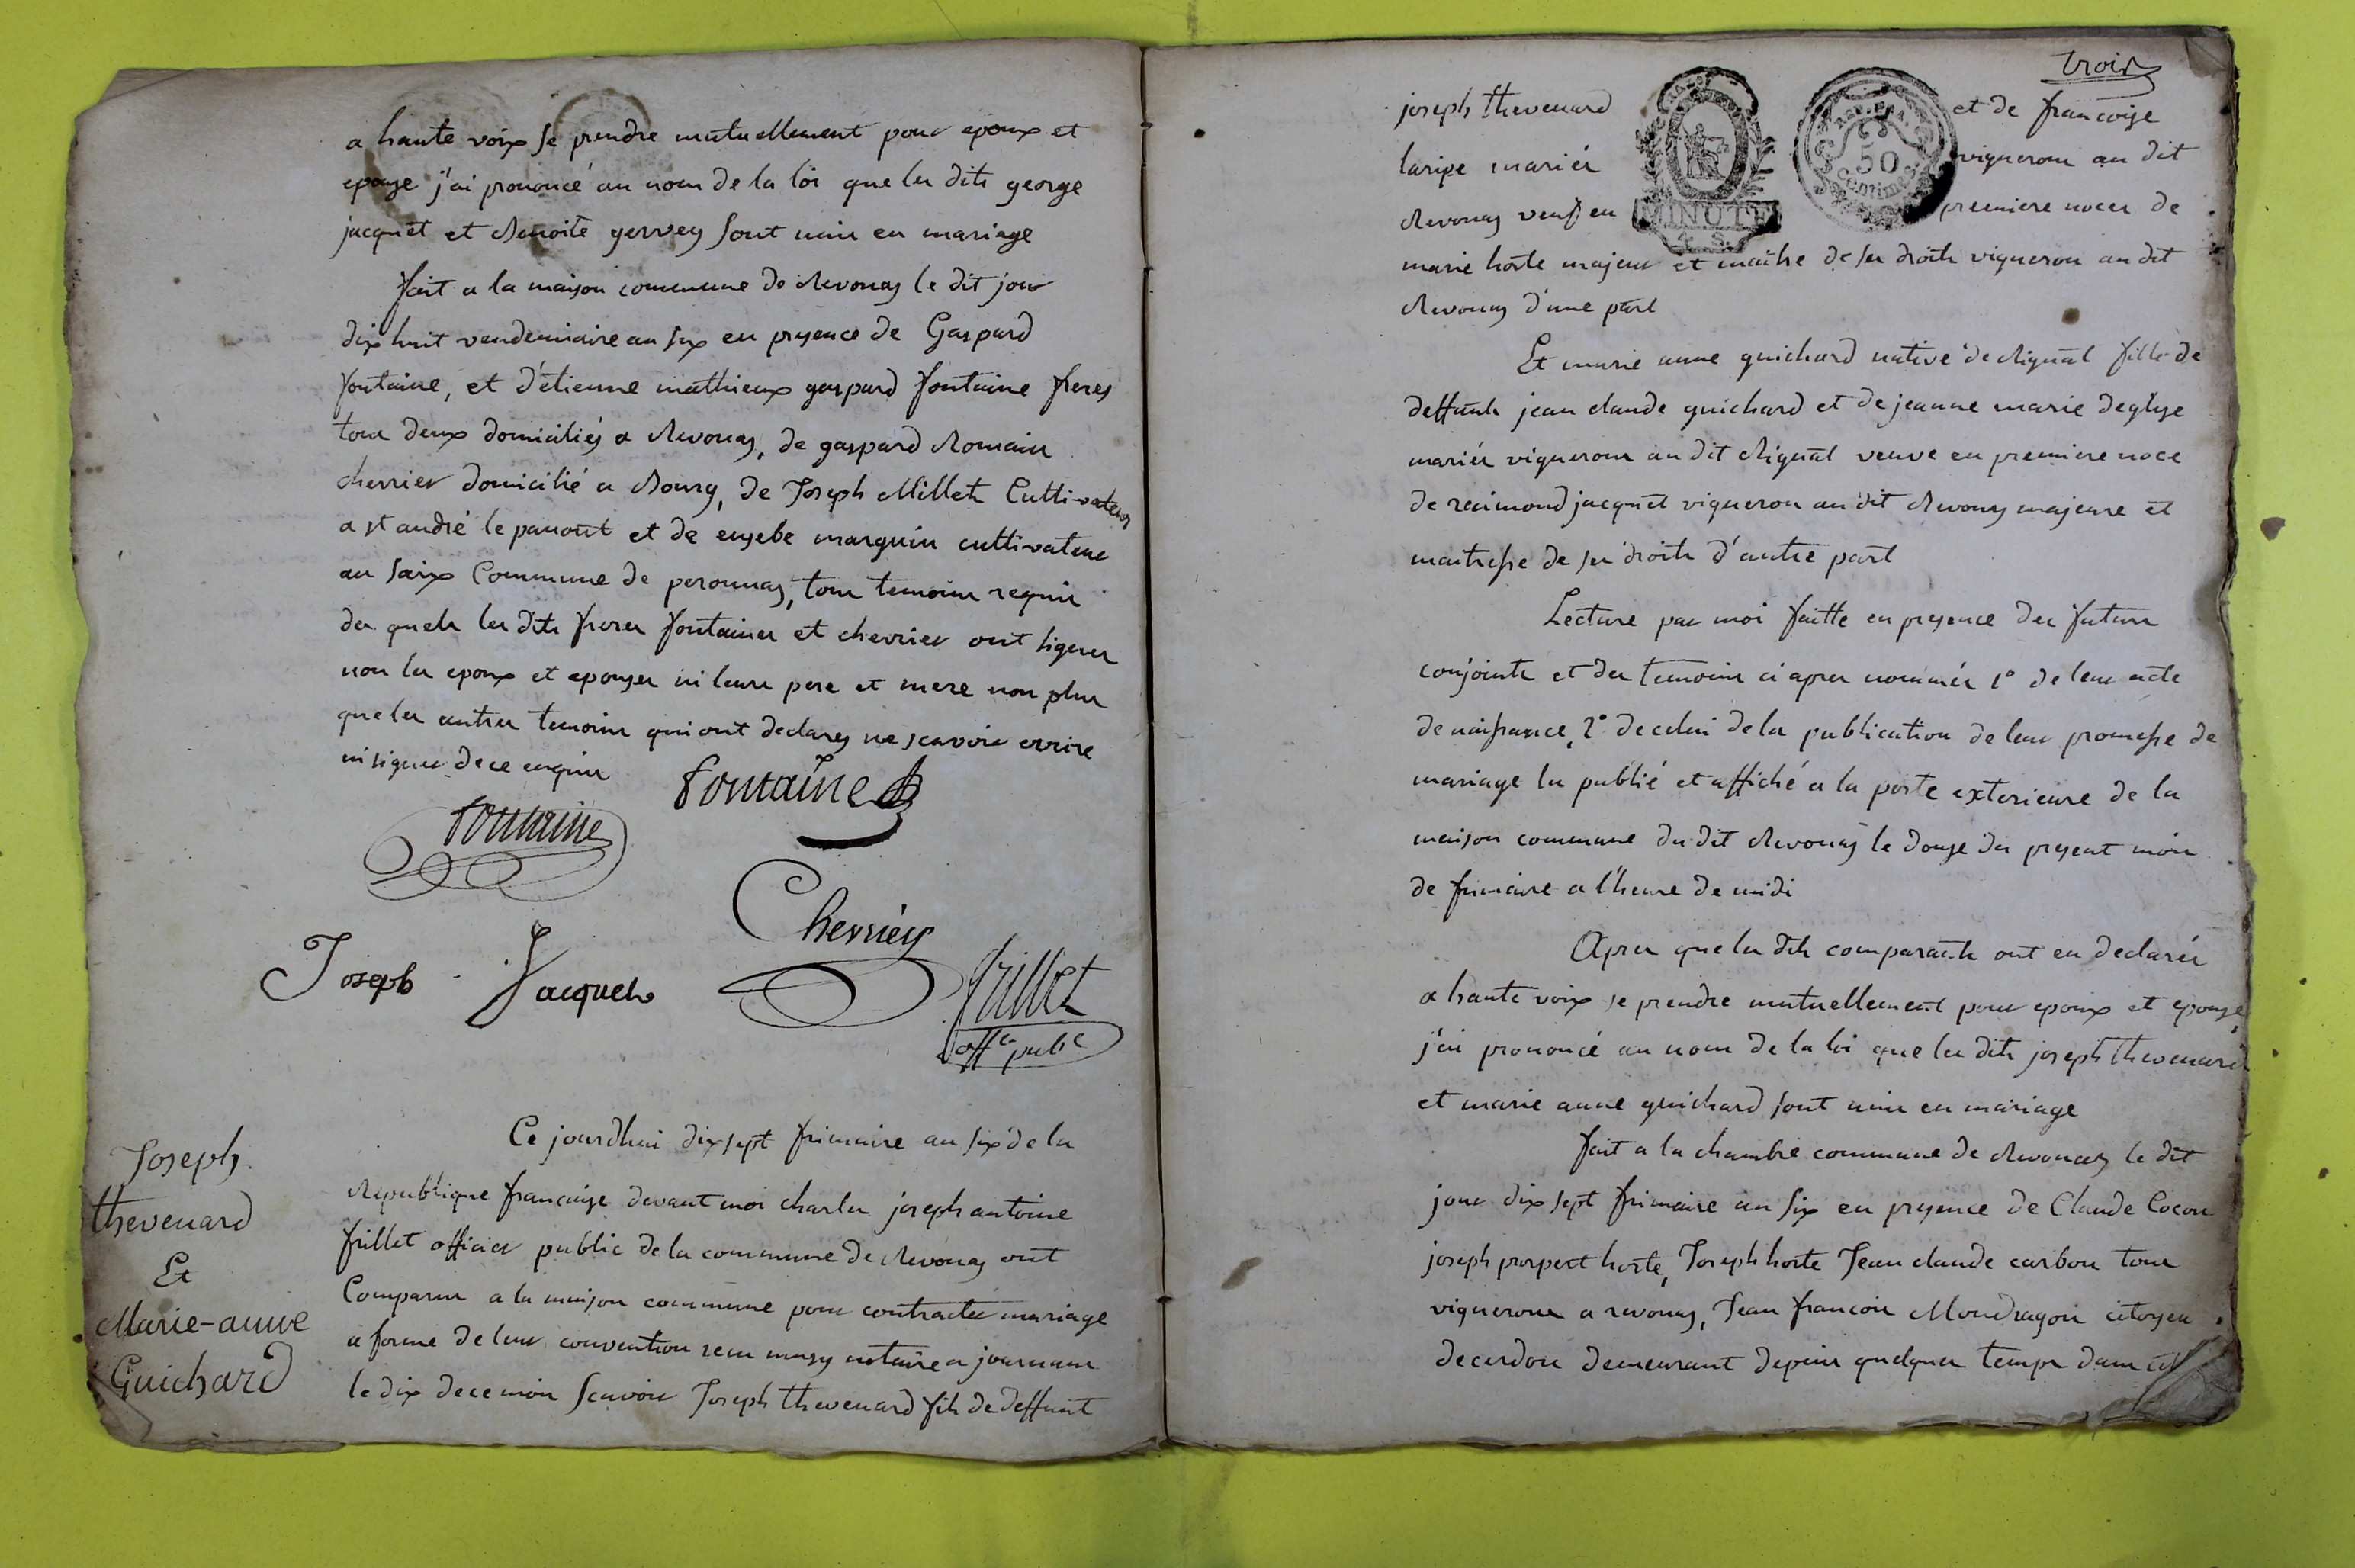 a haute voix se prendre mutuellement pour epoux et
epouse j'ai prononcé au nom de la loi que les dits george
jacquet et Benoite gervey sont unis en mariage
fait a la maison commune de Revonas le dit jour
dix huit vendemiaire an six en presence de Gaspard
fontaine, et d'étienne mathieux gaspard fontaine freres
tous deux domiciliés a Revonas, de gaspard Romain
cherrier domicilié a Bourg, de Joseph Millet Cultivateur
a st andré le panout et de eusebe marguin cultivateur
au saix Commune de peronnas, tous temoins requis
des quels les dits freres fontaines et cherrier ont signes
non les epoux et epouses ni leurs pere et mere non plus
que les autres temoins qui ont declarés ne scavoir ecrire
ni signer de ce enquis
fontaine
fontaine
Cherrier
Joseph Jacquet
frillet
offer pubc
Joseph
thevenard
Et
Marie-anne
Guichard
Ce jourdhui dix sept frimaire an six de la
Republique francaise devant moi charles joseph antoine
frillet officier public de la commune de Revonas ont
Comparus a la maison commune pour contracter mariage
a forme de leur convention recu notaire a journans
le dix de ce mois scavoir Joseph thevenard fils de deffunt
trois
joseph thevenard et de francoise
mariés vignerons au dit
MINUTE
4 S.
REP. FRA.
50
Centimes
Revonas veuf en premiere noces de
marie horte majeur et maitre de ses droits vigneron au dit
Revonas d'une part
Et marie anne guichard native de Rignat fille de
deffunts jean claude guichard et de jeanne marie deglise
mariés vignerons au dit Rignat veuve en premiere noce
de raimond jacquet vigneron au dit Revonas majeure et
maitresse de ses droits d'autre part
Lecture par moi faitte en presence des futurs
conjoints et des temoins ci apres nommés 1° de leur acte
de naissance, 2° de celui de la publication de leur promesse de
mariage lu publié et affiché a la porte exterieure de la
maison commune du dit Revonas le douze du present mois
de frimaire a l'heure de midi
Apres que les dits comparants ont eu declarés
a haute voix se prendre mutuellement pour epoux et epouse,
j'ai prononcé au nom de la loi que les dits joseph thevenard
et marie anne guichard sont unis en mariage
fait a la chambre commune de Revonas le dit
jour dix sept frimaire an six en presence de Claude Cocon
joseph prospert horte, Joseph horte Jean claude carbon tous
vignerons a revonas, Jean francois Mondragon citoyen
de cerdon demeurant depuis quelques temps dans